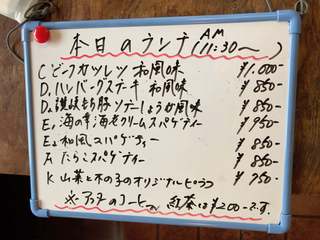 本日のランチ (AM 11:30〜)
C. ビーフカツレツ 和風味 ¥1.000-
D1 ハンバーグステーキ 和風味 ¥850-
D2 讃岐もち豚ソテーしょうゆ風味 ¥850-
E1 海の幸海老クリームスパゲティー ¥950-
E2 和風スパゲティー ¥850-
A たらこスパゲティー ¥850-
K 山菜と木の子のオリジナルピラフ ¥750-
※ランチのコーヒー 紅茶は¥200-です。